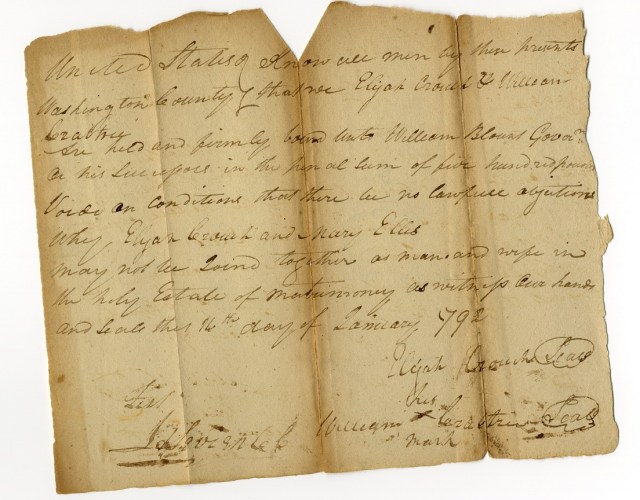 United States } Know all men by these presents
Washington County } that we Elijah Crouch & William
are held and firmly bound unto William Blount Govern
or his Successors in the penal sum of five hundred pounds
Void on conditions that there be no lawfull objections
why Elijah Crouch and Mary Ellis
may not be Joind together as man and wife in
the holy Estate of matrimoney as witness our hands
and seals this 14th day of January 792
Elijah Crouch Seal
his
William Seal
mark
Test